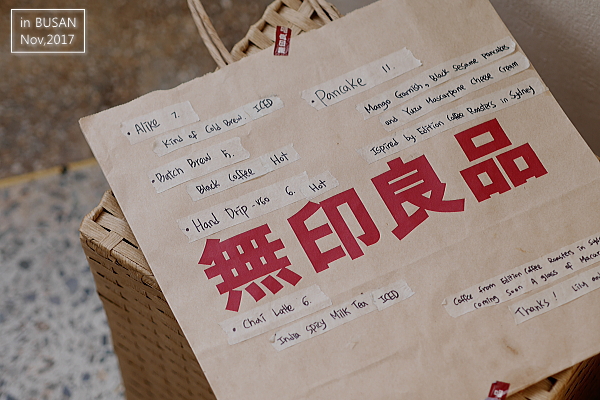 in BUSAN
Nov,2017
• Alike 7.
Kind of Cold Brew. ICED
• Batch Brew 5.
Black Coffee Hot
• Hand Drip - V60 6. Hot
• Pancake 11.
Mango Garnish, Black Sesame Pancakes
and Yuzu Mascarpone Cheese Cream
Inspired by Edition Coffee Roasters in Sydney
無印良品
• Chai Latte 6.
India Spicy Milk Tea ICED
Coffee from Edition Coffee Roasters in
coming soon A glass of
Thanks! Lily